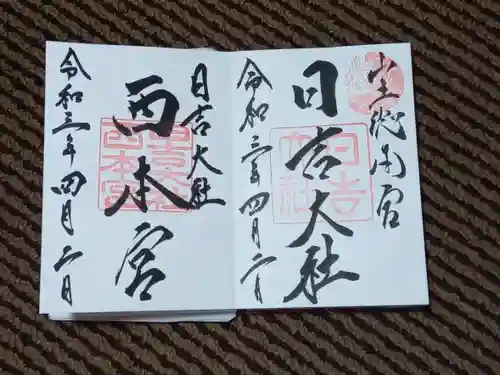 山王総本宮
日吉大社
日吉大社
令和三年四月二日
日吉大社
西本宮
令和三年四月二日